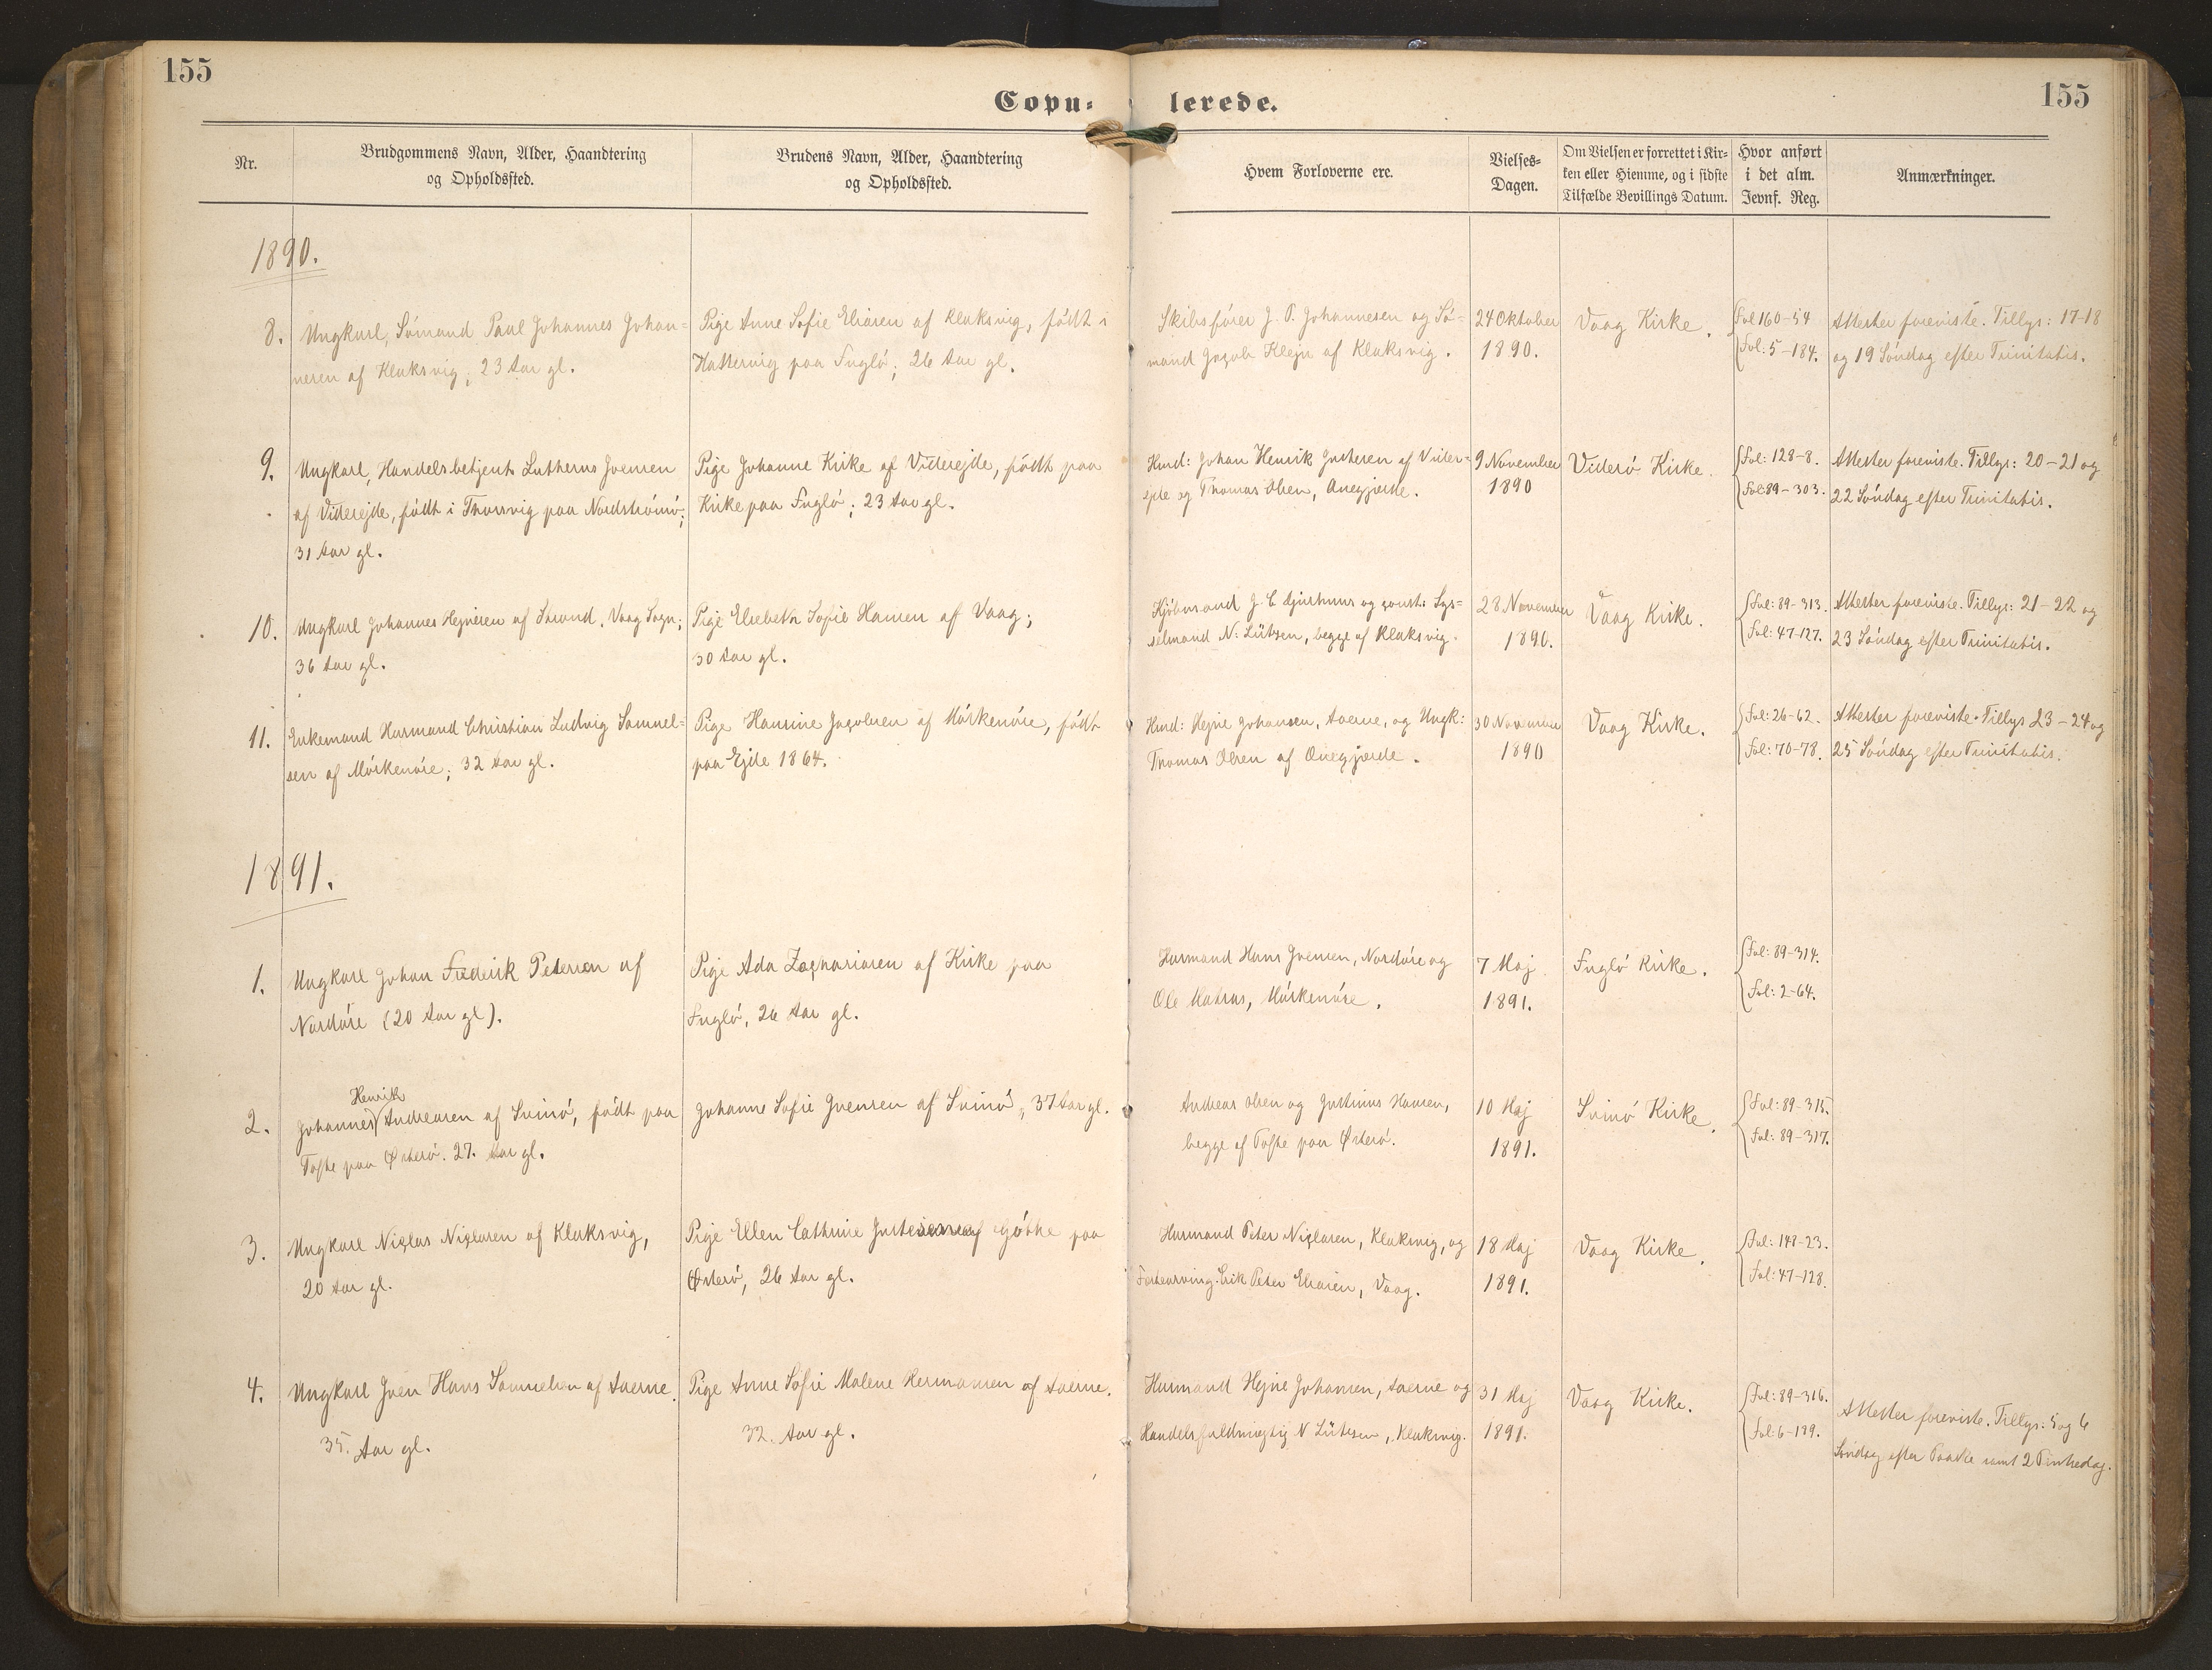 155
155
Copu=lerede.
Nr.
Brudgommens Navn, Alder, Haandtering
og Opholdssted.
Brudens Navn, Alder, Haandtering
og Opholdssted.
Hvem Forloverne ere.
Vielses=
Dagen.
Om Vielsen er forrettet i Kir=
ken eller Hjemme, og i sidste
Tilfælde Bevillings Datum.
Hvor anført
i det alm.
Jevnf. Reg.
Anmærkninger.
1890.
8.
Ungkarl, Sømand Paul Johannes Johan=
nesen af Klaksvig; 23 Aar gl.
Pige Anne Sofie Eliasen af Klaksvig, født i
Hattervig paa Fuglø; 26 Aar gl.
Skibsfører J. P. Johannesen og Sø=
mand Jacob Klejn af Klaksvig.
24 Oktober
1890.
Vaag Kirke.
Fol 160-54
Fol: 5-184.
Attester foreviste. Tillys: 17-18
og 19 Søndag efter Trinitatis.
9.
Ungkarl, Handelsbetjent Lutherus Joensen
af Viderejde, født i Thorsvig paa Nordstrømø;
31 Aar gl.
Pige Johanne Kirke af Viderejde, født paa
Kirke paa Fuglø; 23 Aar gl.
Husd: Johan Henrik Justesen af Vider=
ejde og Thomas Olsen, Ànegjærde.
9 November
1890
Viderø Kirke.
Fol: 128-8.
Fol: 89-303.
Attester foreviste. Tillys: 20-21 og
22 Søndag efter Trinitatis.
10.
Ungkarl Johannes Hejnesen af Strand, Vaag Sogn;
36 Aar gl.
Pige Elsebeth Sofie Hansen af Vaag;
30 Aar gl.
Kjøbmand J. C. Djurhuus og const: Sys=
selmand N. Lützen, begge af Klaksvig.
28 November
1890.
Vaag Kirke.
Fol: 89-313.
Fol: 47-127.
Attester foreviste. Tillys: 21-22 og
23 Søndag efter Trinitatis.
11.
Enkemand Husmand Christian Ludvig Samuel=
sen af Mórkenóre; 32 Aar gl.
Pige Hansine Jacobsen af Mórkenóre, født
paa Ejde 1864.
Husd: Hejne Johansen, Aaerne, og Ungk:
Thomas Olsen af Ànegjærde.
30 November
1890
Vaag Kirke.
Fol: 26-62.
Fol: 70-78.
Attester foreviste. Tillys 23-24 og
25 Søndag efter Trinitatis.
1891.
1.
Ungkarl Johan Frederik Petersen af
Nordóre (20 Aar gl).
Pige Ada Zachariasen af Kirke paa
Fuglø, 26 Aar gl.
Husmand Hans Joensen, Nordóre og
Ole Matras, Mórkenóre.
7 Maj
1891.
Fuglø Kirke.
Fol: 89-314.
Fol: 2-64.
2.
Henrik
Johannes Andreasen af Svinø, født paa
Tofte paa Østerø. 27. Aar gl.
Johanne Sofie Joensen af Svinø, 37 Aar gl.
Andreas Olsen og Justinus Hansen,
begge af Tofte paa Østerø.
10 Maj
1891.
Svinø Kirke.
Fol: 89-315.
Fol: 89-317.
3.
Ungkarl Niclas Niclasen af Klaksvig,
20 Aar gl.
Pige Ellen Cathrine Justesen af Gøtke paa
Østerø, 26 Aar gl.
Husmand Peter Niclasen, Klaksvig, og
Erik Peter Eliasen, Vaag.
18 Maj
1891.
Vaag Kirke.
Fol: 148-23.
Fol: 47-128.
4.
Ungkarl Joen Hans Samuelsen af Aaerne.
35. Aar gl.
Pige Anne Sofie Malene Hermansen af Aaerne.
32. Aar gl.
Husmand Hejne Johansen, Aaerne og
Handelsfuldmægtig N Lützen, Klaksvig.
31 Maj
1891.
Vaag Kirke.
Fol: 89-316.
Fol: 6-129.
Attester foreviste. Tillys: 5 og 6
Søndag efter Paaske samt 2 Pintsedag.